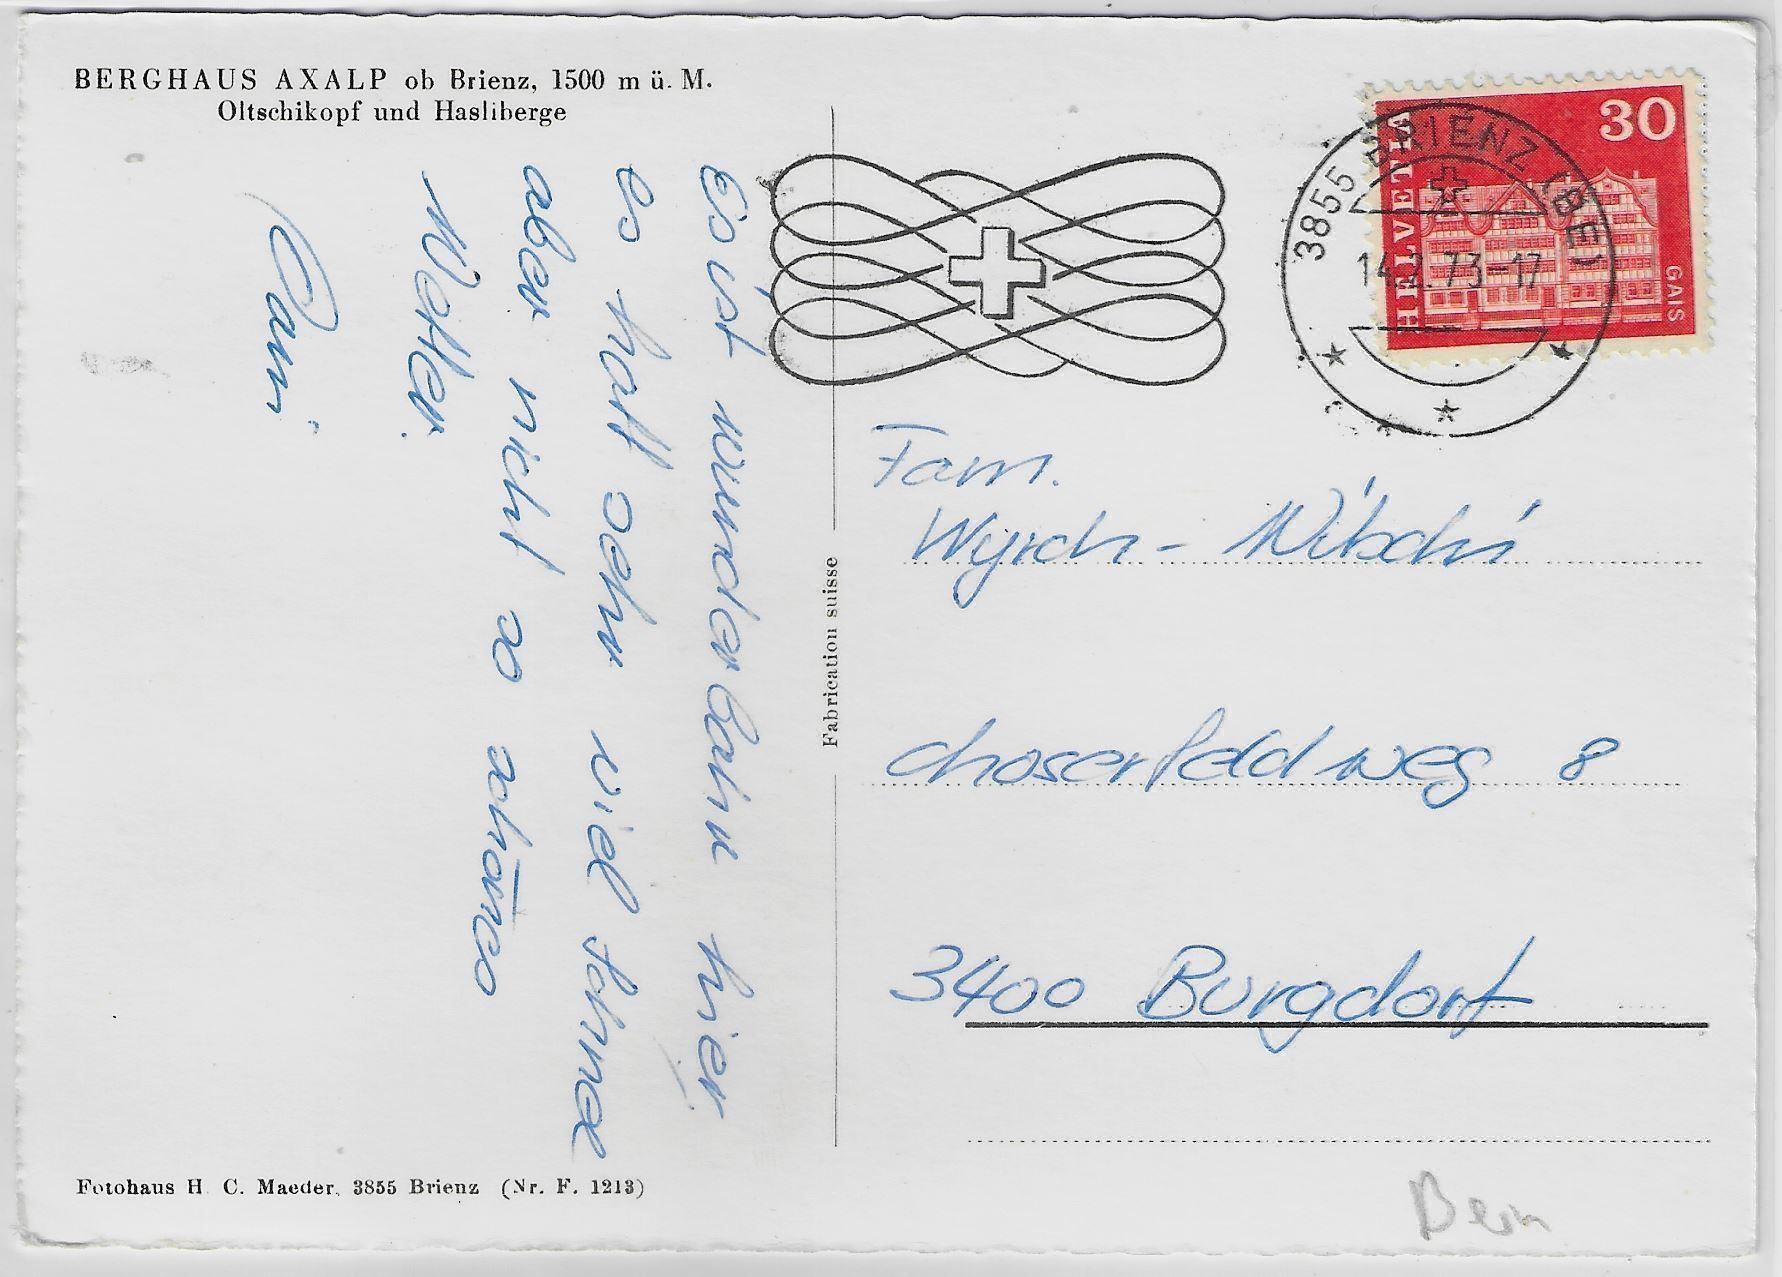 BERGHAUS AXALP ob Brienz, 1500 m ü. M.
Oltschikopf und Hasliberge
Es ist wunderbahr hier
es hatt sehr viel Schnee
aber nicht so schönes
Wetter.
Fabrication suisse
HELVETIA
30
GAIS
3855 BRIENZ (BE)
14.2.73-17
Fam.
Wyrch-
weg 8
3400 Burgdorf
Fotohaus H. C. Maeder, 3855 Brienz (Nr. F. 1213)
Bern